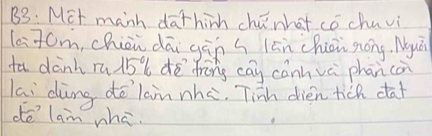 B3: Một mảnh đất hình chữ nhật có chu vi
là 70m, chiều dài gấp 4 lần chiều rộng. Người
ta dành ra 15% để trồng cây cảnh và phần còn
lại dùng để làm nhà. Tính diện tích đất
để làm nhà.